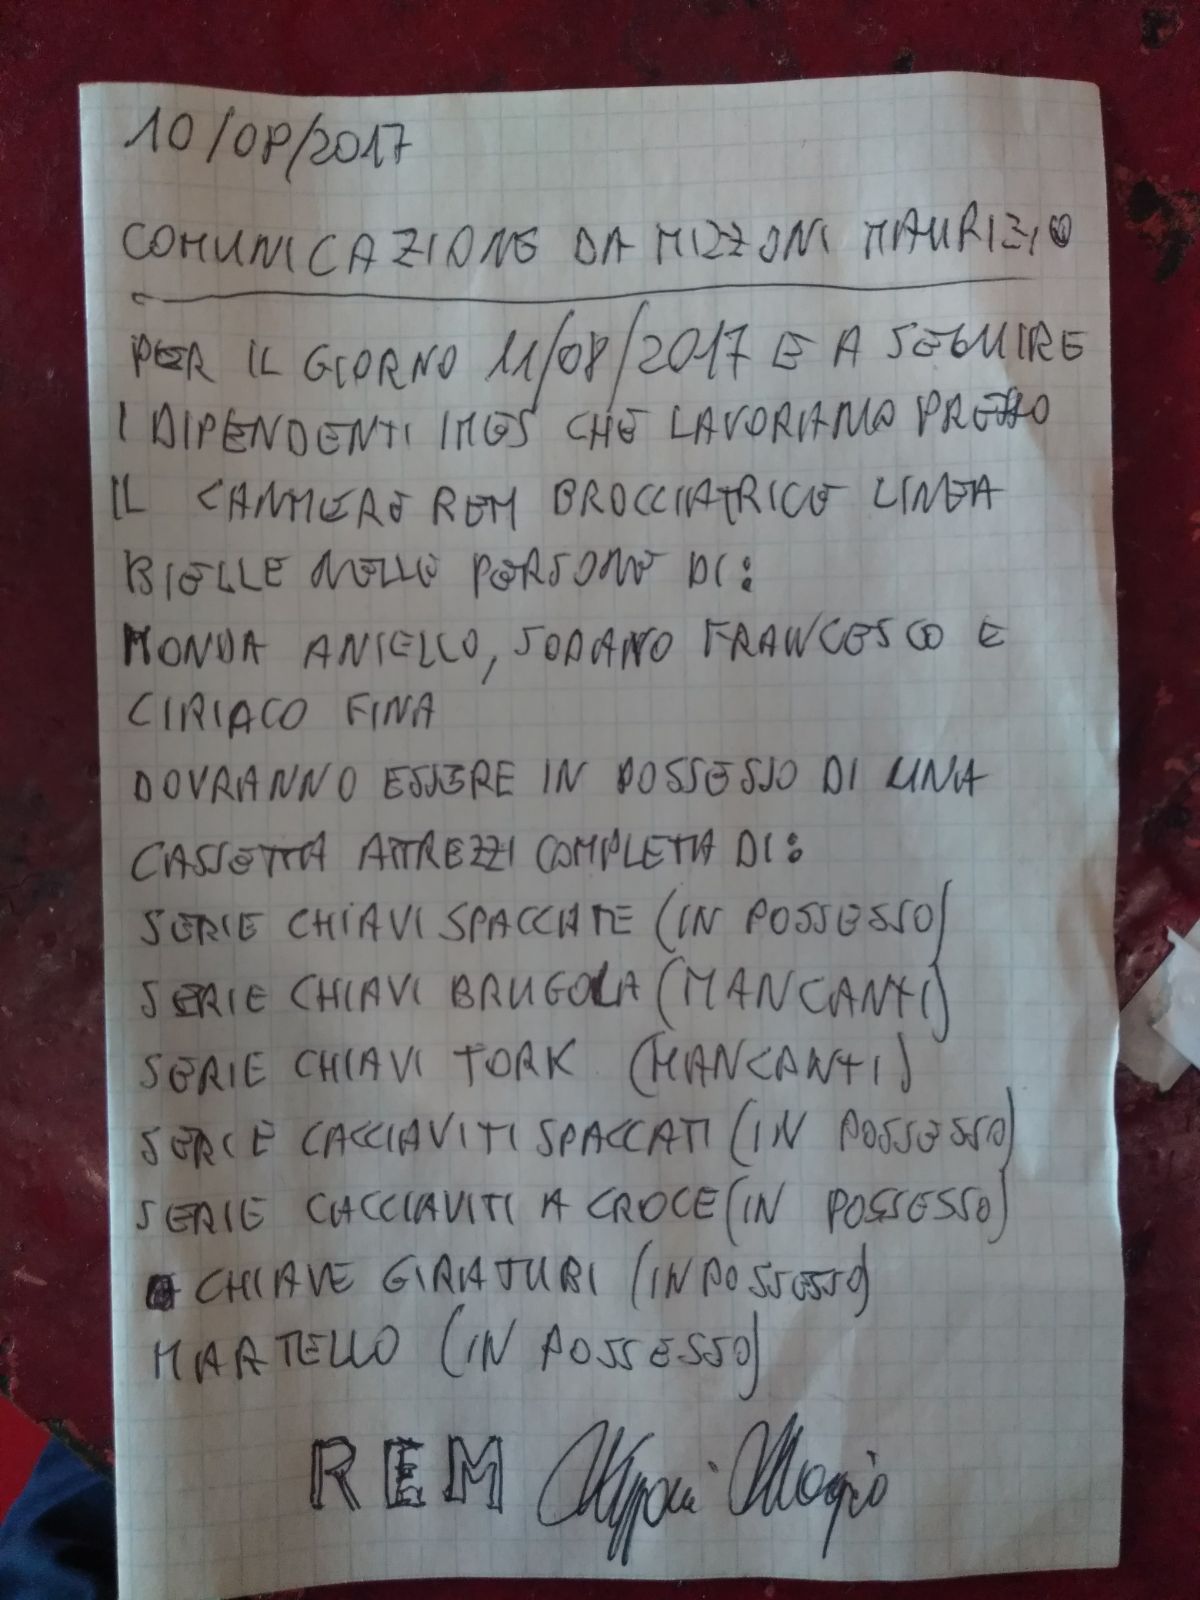 10/08/2017
COMUNICAZIONE DA MIZZONI MAURIZIO
PER IL GIORNO 11/08/2017 E A SEGUIRE
I DIPENDENTI IMES CHE LAVORIAMO PRESSO
IL CANTIERE REM BROCCIATRICE LINEA
BIELLE NELLE PERSONE DI:
MONDA ANIELLO, SODANO FRANCESCO E
CIRIACO FINA
DOVRANNO ESSERE IN POSSESSO DI UNA
CASSETTA ATTREZZI COMPLETA DI:
SERIE CHIAVI SPACCATE (IN POSSESSO)
SERIE CHIAVI BRUGOLA (MANCANTI)
SERIE CHIAVI TORK (MANCANTI)
SERIE CACCIAVITI SPACCATI (IN POSSESSO)
SERIE CACCIAVITI A CROCE (IN POSSESSO)
CHIAVE GIRATUBI (IN POSSESSO)
MARTELLO (IN POSSESSO)
REM